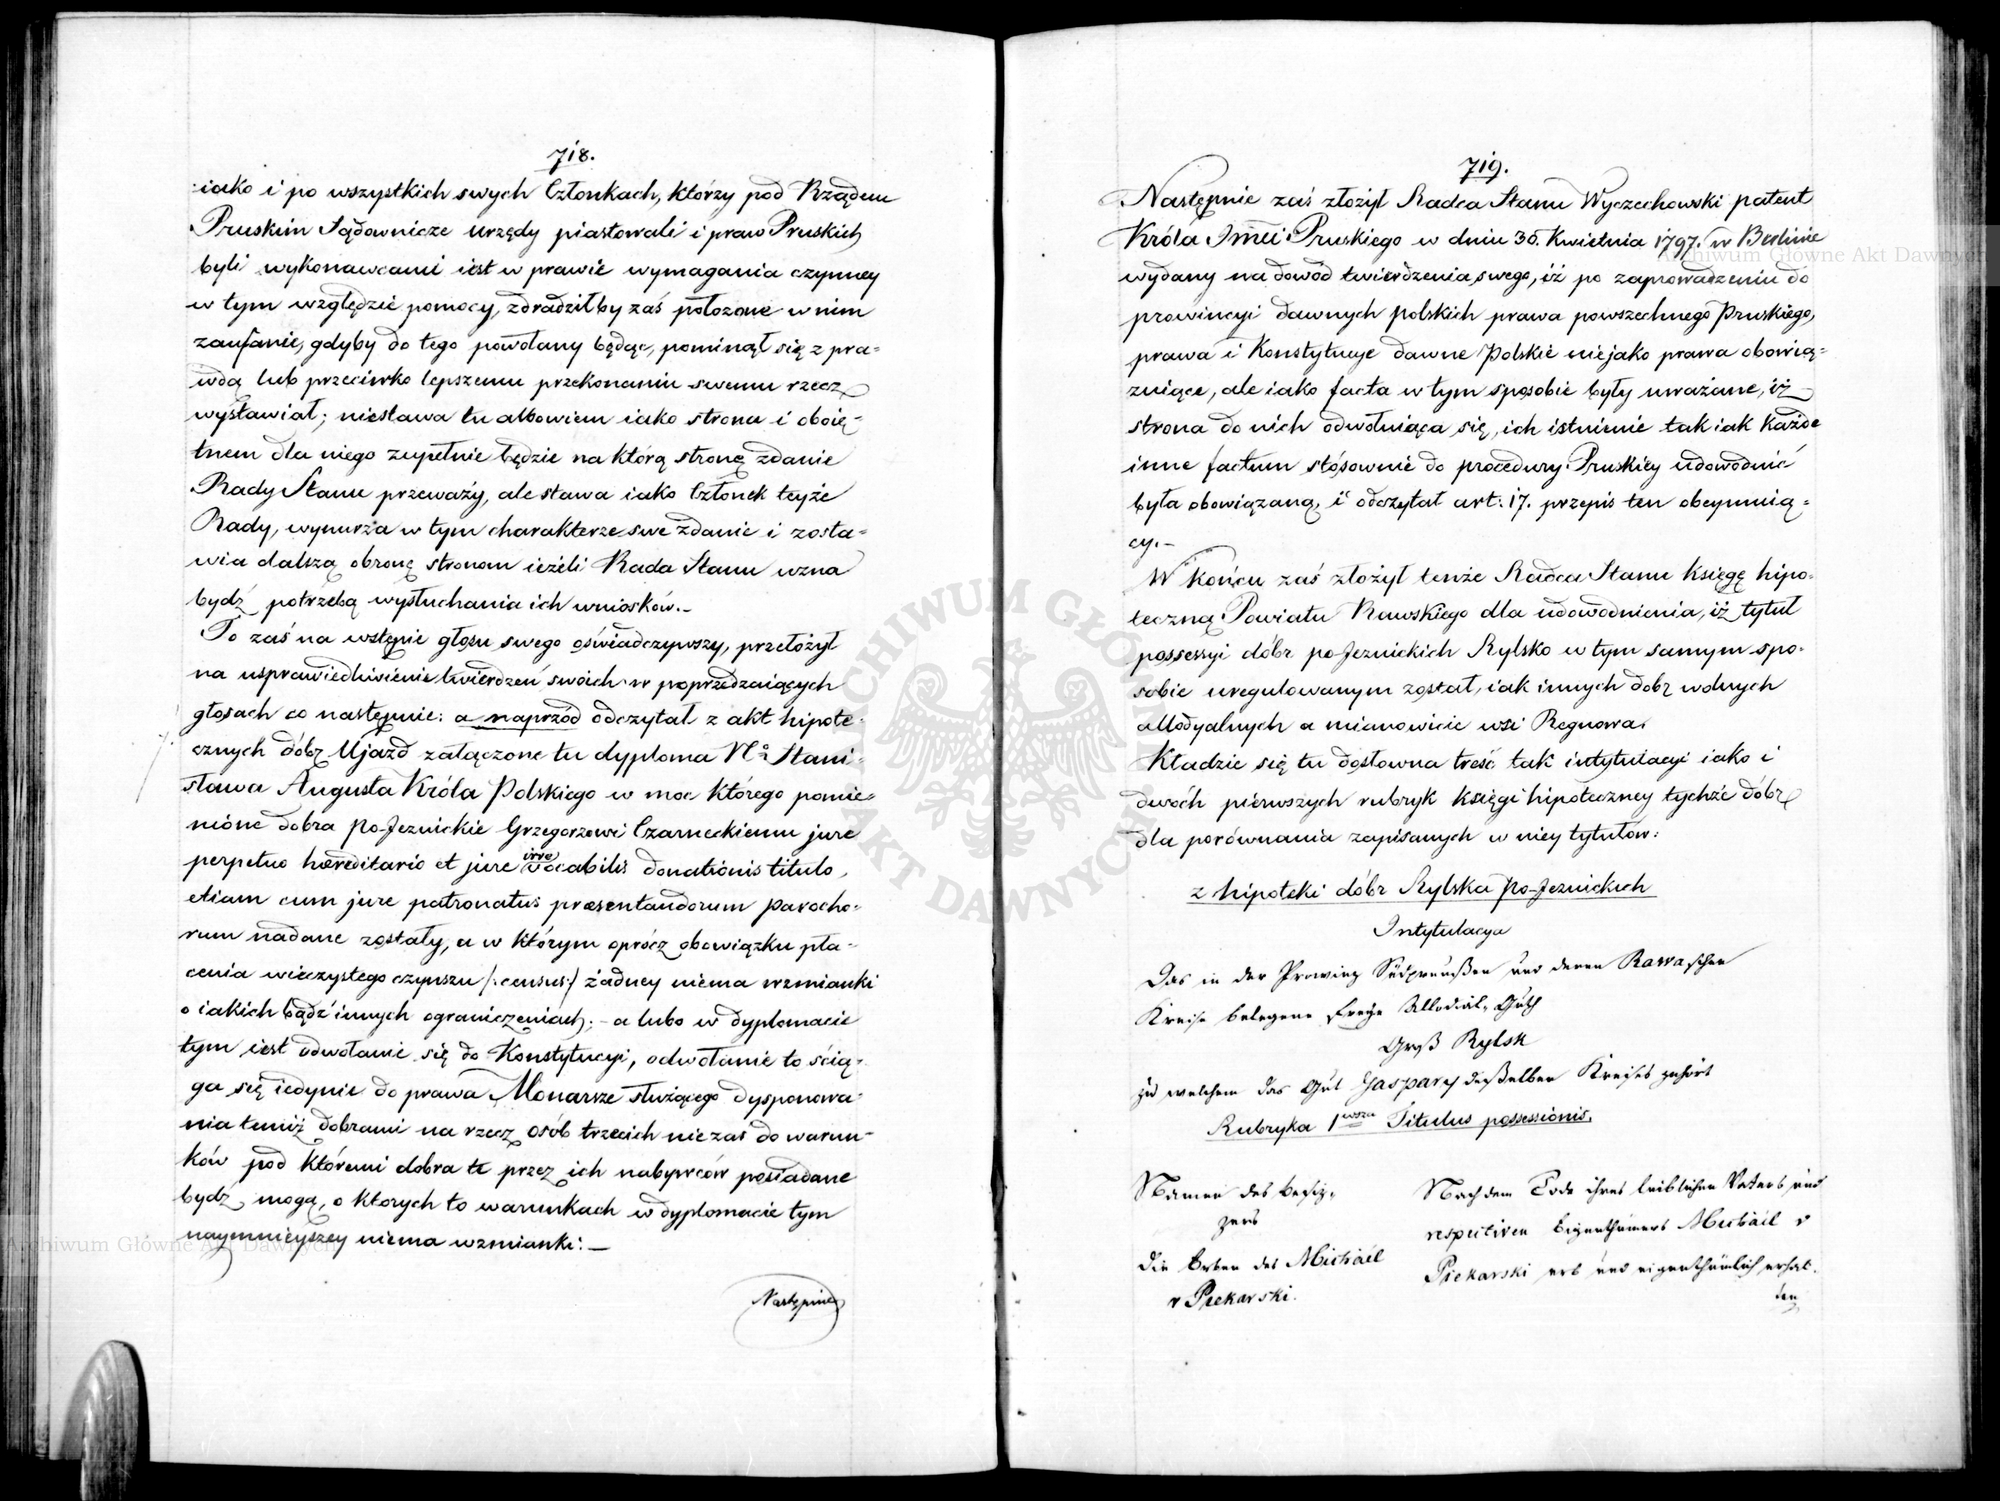 718.
iako i po wszystkich swych Członkach, którzy pod Rządem
Pruskim Sądownicze urzędy piastowali i praw Pruskich
byli wykonawcami iest w prawie wymagania czynney
w tym względzie pomocy, zdradziłby zaś położone w nim
zaufanie, gdyby do tego powołany będąc, pominął się z pra-
wdą lub przeciwko lepszemu przekonaniu swemu rzecz
wystawiał; niestawa tu albowiem iako strona i oboię-
tnem dla niego zupełnie będzie na którą stronę zdanie
Rady Stanu przeważy, ale stawa iako Członek teyże
Rady, wynurza w tym charakterze swe zdanie i zosta-
wia dalszą obronę stronom ieżeli Rada Stanu uzna
bydź potrzebą wysłuchania ich wniosków.-
To zaś na wstępie głosu swego oświadczywszy, przełożył
na usprawiedliwienie twierdzeń swoich w poprzedzaiących
głosach co następuie: a naprzód odczytał z akt hipote-
cznych dóbr Ujazd załączone tu dyploma Nº Stani-
sława Augusta Króla Polskiego w moc którego pomie-
nione dobra po-Jeznickie Grzegorzowi Czarneckiemu jure
perpetuo hæreditario et jure irrevocabilis donationis titulo,
etiam cum jure patronatus præsentandorum parocho-
rum nadane zostały, a w którym oprócz obowiązku pła-
cenia wieczystego czynszu /:census:/ żadney niema wzmianki
o iakich bądź innych ograniczeniach; - a lubo w dyplomacie
tym iest odwołanie się do Konstytucyi, odwołanie to ścią-
ga się iedynie do prawa Monarsze służącego dysponowa-
nia temiż dobrami na rzecz osób trzecich nie zaś do warun-
ków pod któremi dobra te przez ich nabywców posiadane
bydź mogą, o ktorych to warunkach w dyplomacie tym
naymnieyszey niema wzmianki: —
Następnie
719.
Następnie zaś złożył Radca Stanu Wyczechowski patent
Króla Jmci Pruskiego w dniu 30. Kwietnia 1797. w Berlinie
wydany na dowód twierdzenia swego, iż po zaprowadzeniu do
prowincyi dawnych polskich prawa powszechnego Pruskiego,
prawa i Konstytucye dawne Polskie nie jako prawa obowią-
zuiące, ale iako facta w tym sposobie były uważane, iż
strona do nich odwołuiąca się, ich istnienie tak iak każde
inne factum stósownie do procedury Pruskiey udowodnić
była obowiązaną, i odczytał art: 17. przepis ten obeymuią-
cy.-
W końcu zaś złożył tenże Radca Stanu księgę hipo-
teczną Powiatu Rawskiego dla udowodnienia, iż tytuł
possessyi dóbr po-Jeznickich Rylsko w tym samym spo-
sobie uregulowanym został, iak innych dóbr wolnych
allodyalnych a mianowicie wsi Regnowa.
Kładzie się tu dosłowna treść tak intytulacyi iako i
dwóch pierwszych rubryk księgi hipoteczney tychże dóbr
dla porównania zapisanych w niey tytułów:
z hipoteki dóbr Rylska Po-Jeznickich
Intytulacya
Das in der Provinz Südpreußen und deren Rawaschen
Kreise belegene freye Allodial-Guth
Groß Rylsk
zu welchem das Gut Gaspary desselben Kreises gehört
Rubryka 1wsza Titulus possessionis.
Namen des Besiz-
zers
Die Erben des Michael
v Piekarski.
Nach dem Tode ihres leiblichen Vaters und
respectiven Eigenthümers Michael v
Piekarski erb und eigenthümlich erhal-
ten
Archiwum Główne Akt Dawnych
ARCHIWUM GŁÓWNE AKT DAWNYCH
Archiwum Główne Akt Dawnych